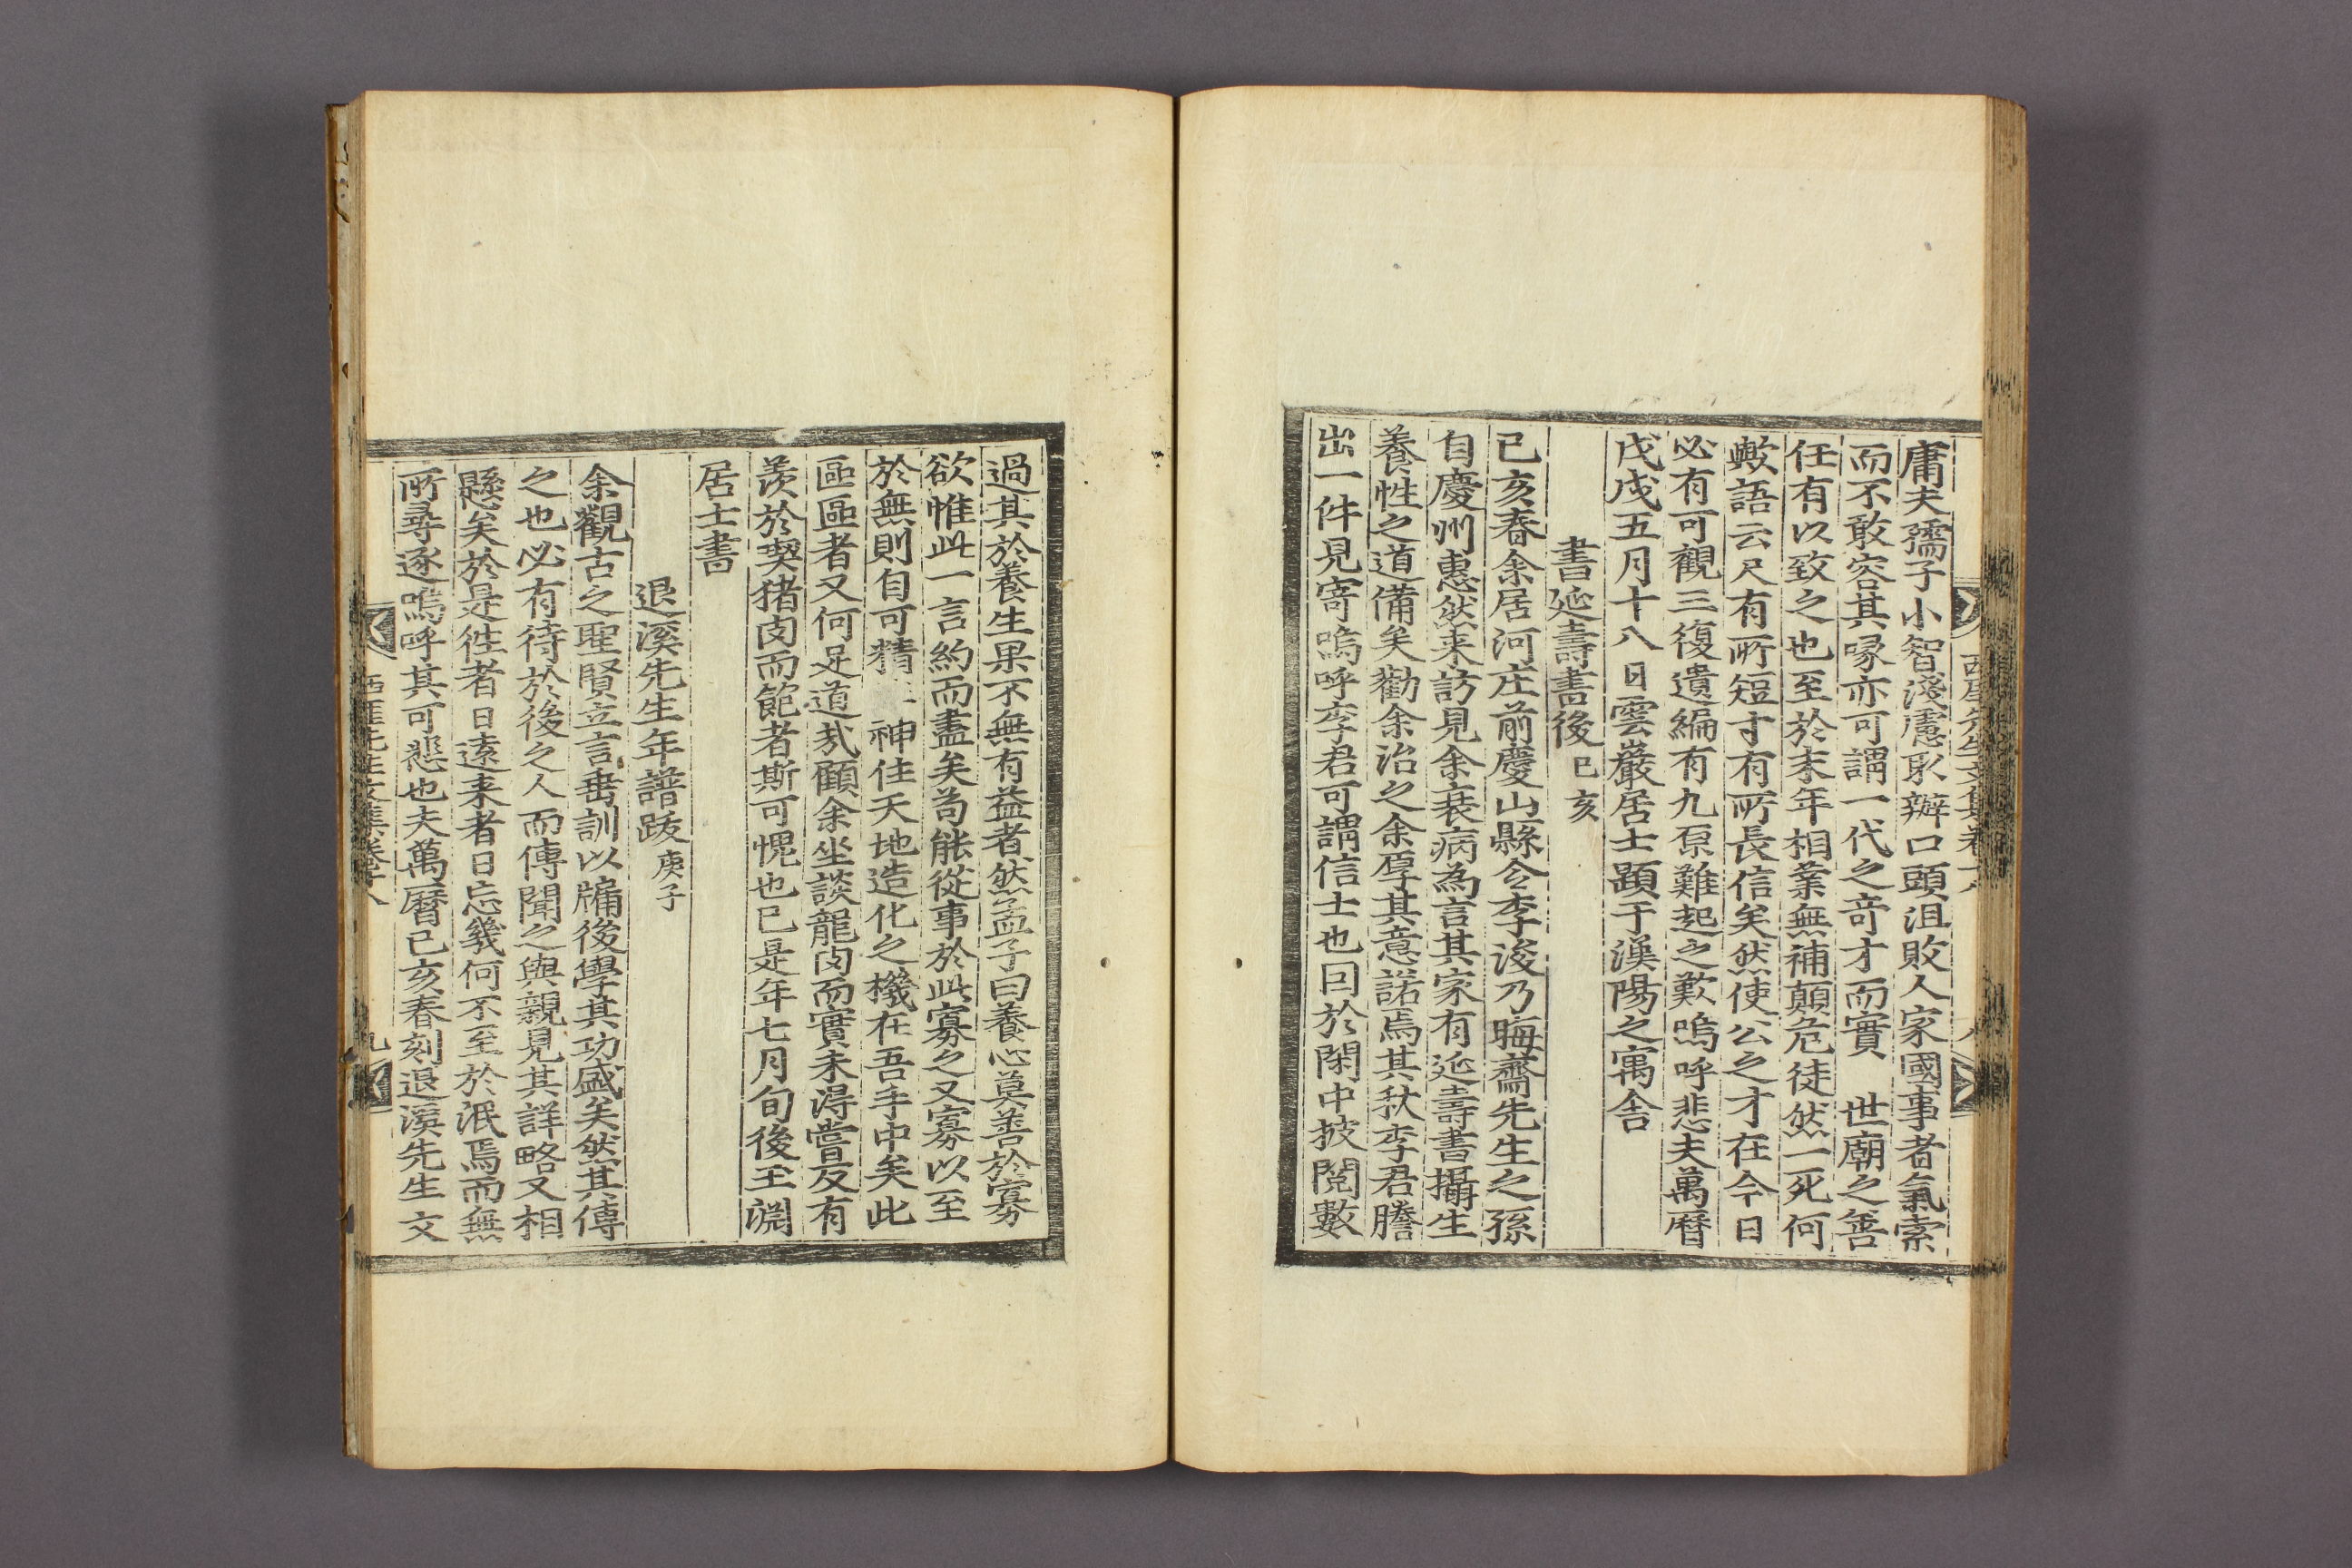 庸夫孺子小智淺慮取辦口頭沮敗人家國事者氣索
而不敢容其喙亦可謂一代之奇才而實 世廟之善
任有以致之也至於末年相業無補顛危徒然一死何
歟語云尺有所短寸有所長信矣然使公之才在今日
必有可觀三復遺編有九原難起之歎嗚呼悲夫萬曆
戊戌五月十八日雲巖居士題于漢陽之寓舍
書延壽書後 己亥
己亥春余居河庄前慶山縣令李浚乃晦齋先生之孫
自慶州惠然來訪見余衰病爲言其家有延壽書攝生
養性之道備矣勸余治之余厚其意諾焉其秋李君謄
出一件見寄嗚呼李君可謂信士也因於閑中披閱數
過其於養生果不無有益者然孟子曰養心莫善於寡
欲惟此一言約而盡矣苟能從事於此寡之又寡以至
於無則自可精 神住天地造化之機在吾手中矣此
區區者又何足道哉顧余坐談龍肉而實未得嘗反有
羨於喫猪肉而飽者斯可愧也已是年七月旬後玉淵
居士書
退溪先生年譜跋 庚子
余觀古之聖賢立言垂訓以牖後學其功盛矣然其傳
之也必有待於後之人而傳聞之與親見其詳略又相
懸矣於是徃者日遠来者日忘幾何不至於泯焉而無
所尋逐嗚呼其可悲也夫萬曆己亥春刻退溪先生文
西厓先生文集卷十八 九